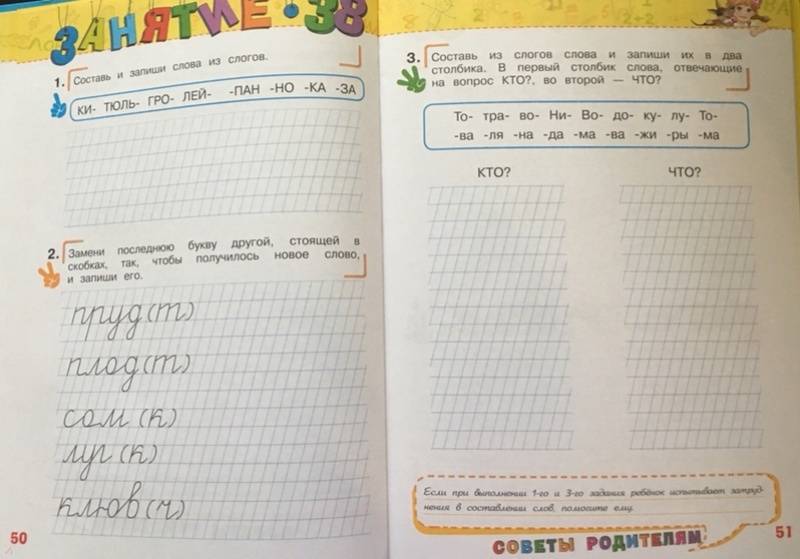 ЗАНЯТИЕ • 38
1. Составь и запиши слова из слогов.
КИ- ТЮЛЬ- ГРО- ЛЕЙ- -ПАН -НО -КА -ЗА
2. Замени последнюю букву другой, стоящей в
скобках, так, чтобы получилось новое слово,
и запиши его.
пруд(т)
плод(т)
сом (к)
луг (к)
клюв(ч)
50
3. Составь из слогов слова и запиши их в два
столбика. В первый столбик слова, отвечающие
на вопрос КТО?, во второй — ЧТО?
То- тра- во- Ни- Во- до- ку- лу- То-
-ва -ля -на -да -ма -ва -жи -ры -ма
КТО? ЧТО?
Если при выполнении 1-го и 3-го задания ребёнок испытывает затруд-
нения в составлении слов, помогите ему.
СОВЕТЫ РОДИТЕЛЯМ
51